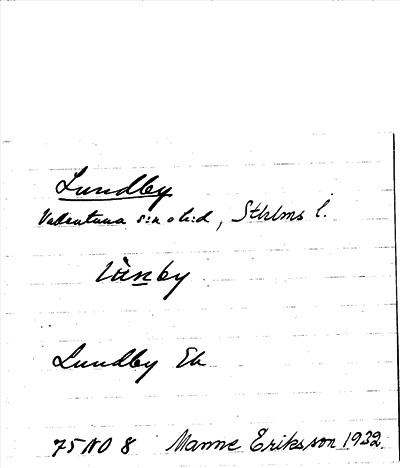 Lundby
Vallentuna s:n o h:d, Sthlms l.
lùnby
Lundby Ek
75 NO 8 Manne Eriksson 1932.